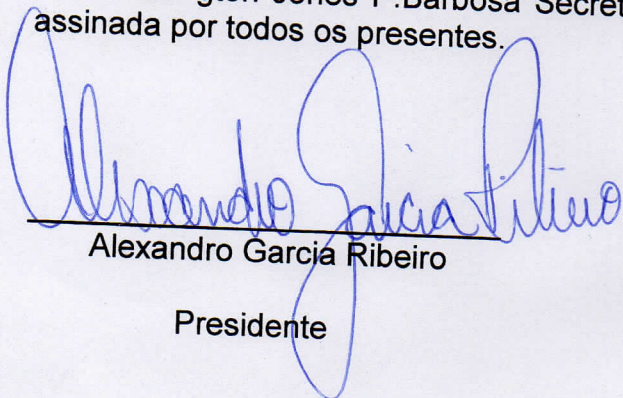 Jones P.Barbosa
assinada por todos os presentes.
Alexandro Garcia Ribeiro
Alexandro Garcia Ribeiro
Presidente